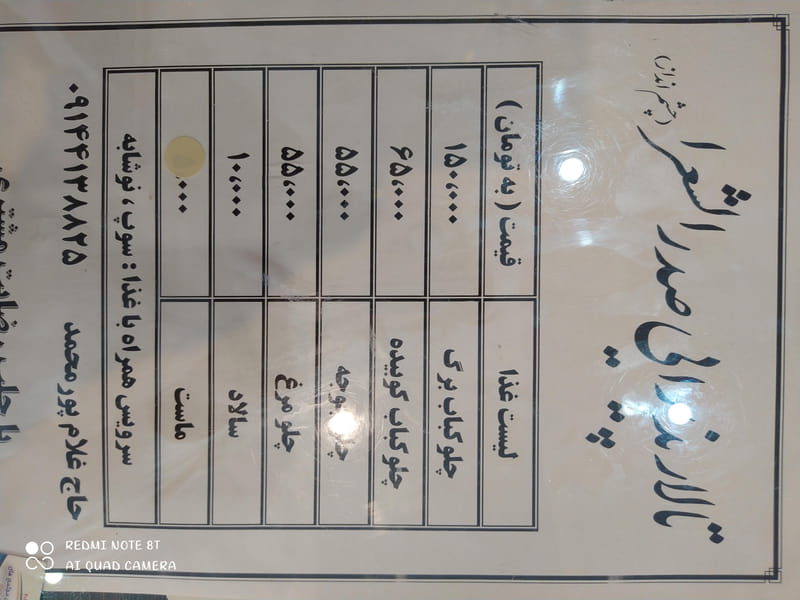 تالار پذیرایی صدرالشعرا
(چشم انداز)
لیست غذا قیمت ( به تومان )
چلو کباب برگ ۱۵۰،۰۰۰
چلو کباب کوبیده ۶۵،۰۰۰
جوجه ۵۵،۰۰۰
چلو مرغ ۵۵،۰۰۰
سالاد ۱۰،۰۰۰
ماست ۰۰۰
سرویس همراه با غذا : سوپ ، نوشابه
حاج غلام پور محمد ۰۹۱۴۴۱۳۸۸۲۵
REDMI NOTE 8T
AI QUAD CAMERA